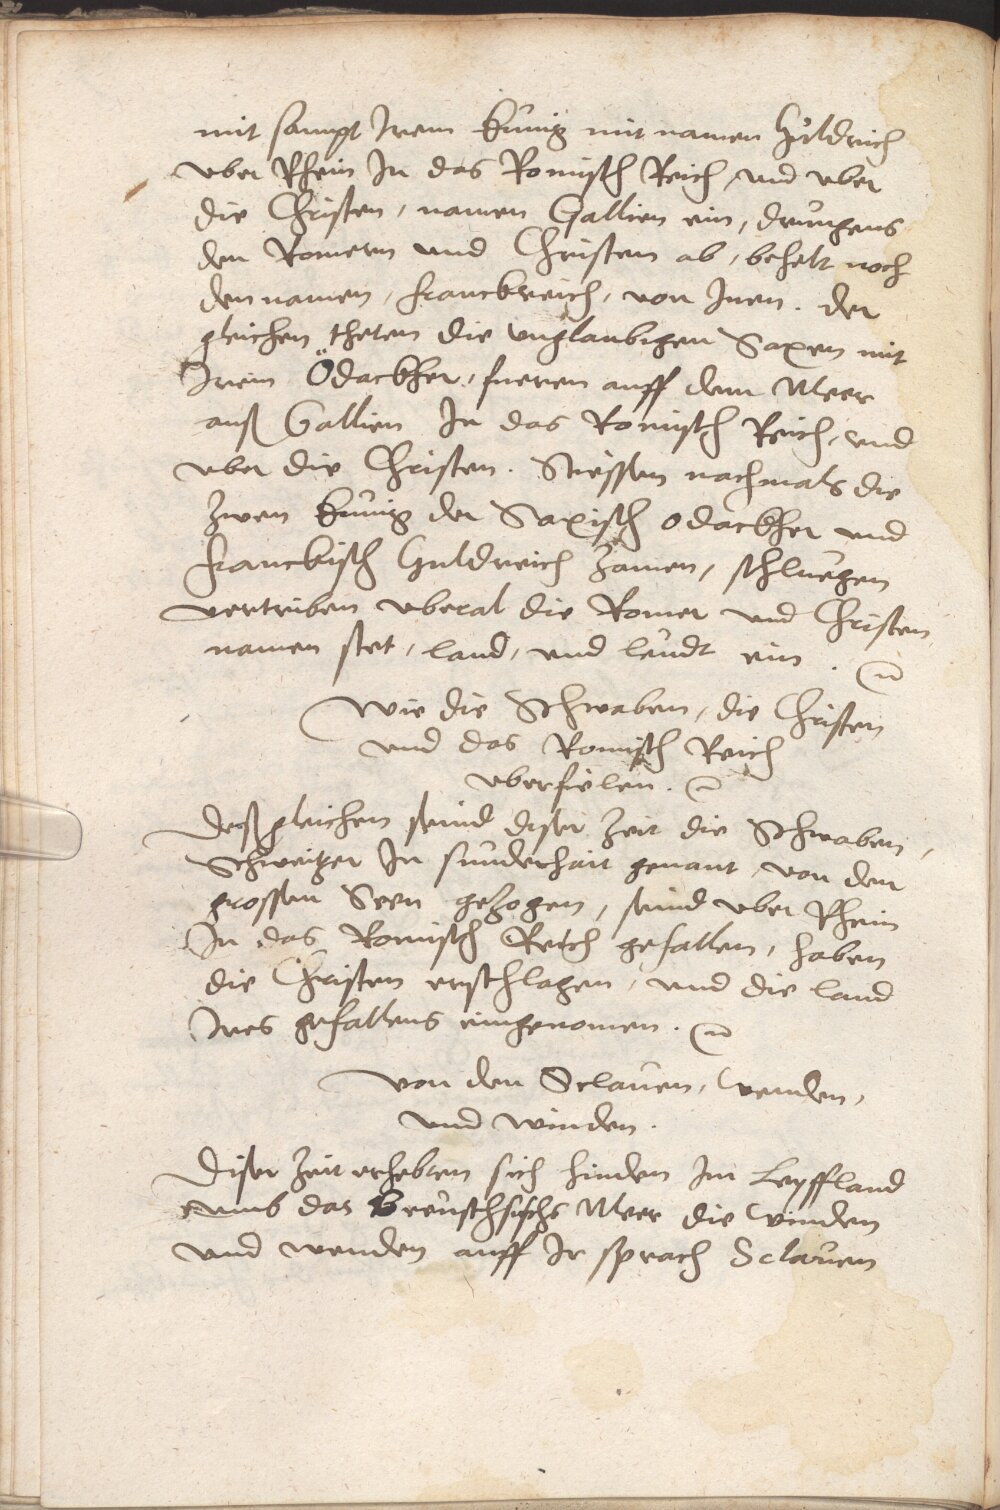 mit sampt Irem Künig mit namen Hüldrich
vber Rhein In das Romisch Reich, vnd vber
die Christen, namen Gallien ein, drungens
den Romern vnd Christen ab, behelt noch
den namen, Franckreich, von Inen. der
gleichen theten die vnglaubigen Saxen mit
Irem Ödackher, fueren auff dem Meer
auß Gallien In das Romisch Reich, vnd
vber die Christen. Stiessen nachmals die
zwen Künig der Saxisch Odackher vnd
Franckisch Huldreich zamen, schluegen
vertriben vberal die Romer vnd Christen
namen stet, land, vnd leüdt ein.
Wie die Schwaben, die Christen
vnd das Romisch Reich
vberfielen.
Deßgleichen seind diser Zeit die Schwaben,
Schweitzer In sünderhait genant, von den
grossen Seen gezogen, seind vber Rhein
In das Romisch Reich gefallen, haben
die Christen erschlagen, vnd die land
Ires gefallens eingenomen.
Von den Sclauen, Wenden,
vnd Winden.
Diser Zeit erhebten sich hinden Im Leyffland
vmb das Breüschische Meer die Winden
vnd Wenden auff Ir sprach Sclauen